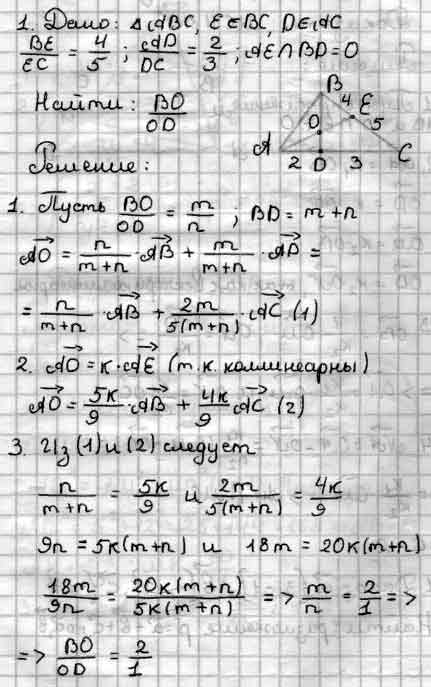 1. Дано: △ABC, E∈BC, D∈AC
BE/EC = 4/5 ; AD/DC = 2/3 ; AE∩BD=O
Найти: BO/OD
B
4 E
O 5
A
2 D 3 C
Решение:
1. Пусть BO/OD = m/n ; BD = m+n
AO→ = n/(m+n) · AB→ + m/(m+n) · AD→ =
= n/(m+n) · AB→ + 2m/5(m+n) · AC→ (1)
2. AO→ = k · AE→ (т.к. коллинеарны)
AO→ = 5k/9 · AB→ + 4k/9 AC→ (2)
3. Из (1) и (2) следует
n/(m+n) = 5k/9 и 2m/5(m+n) = 4k/9
9n = 5k(m+n) и 18m = 20k(m+n)
18m/9n = 20k(m+n)/5k(m+n) => m/n = 2/1 =>
=> BO/OD = 2/1